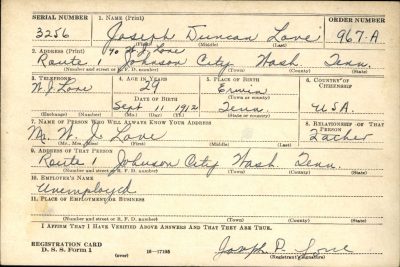 SERIAL NUMBER 1. NAME (Print) ORDER NUMBER
3256 Joseph Duncan Love 967-A
(First) (Middle) (Last)
2. ADDRESS (Print) % W J Love
Route 1 Johnson City Wash. Tenn.
(Number and street or R. F. D. number) (Town) (County) (State)
3. TELEPHONE 4. AGE IN YEARS 5. PLACE OF BIRTH 6. COUNTRY OF CITIZENSHIP
W. J. Love 29 Erwin
(Town or county)
DATE OF BIRTH
Sept 11 1912 Tenn USA.
(Exchange) (Number) (Mo.) (Day) (Yr.) (State or country)
7. NAME OF PERSON WHO WILL ALWAYS KNOW YOUR ADDRESS 8. RELATIONSHIP OF THAT PERSON
Mr. W. J. Love Father
(Mr., Mrs., Miss) (First) (Middle) (Last)
9. ADDRESS OF THAT PERSON
Route 1 Johnson City Wash. Tenn.
(Number and street or R. F. D. number) (Town) (County) (State)
10. EMPLOYER'S NAME
Unemployed
11. PLACE OF EMPLOYMENT OR BUSINESS
(Number and street or R. F. D. number) (Town) (County) (State)
I AFFIRM THAT I HAVE VERIFIED ABOVE ANSWERS AND THAT THEY ARE TRUE.
REGISTRATION CARD
D. S. S. Form 1 (over) 16—17105 Joseph D. Love
(Registrant's signature)